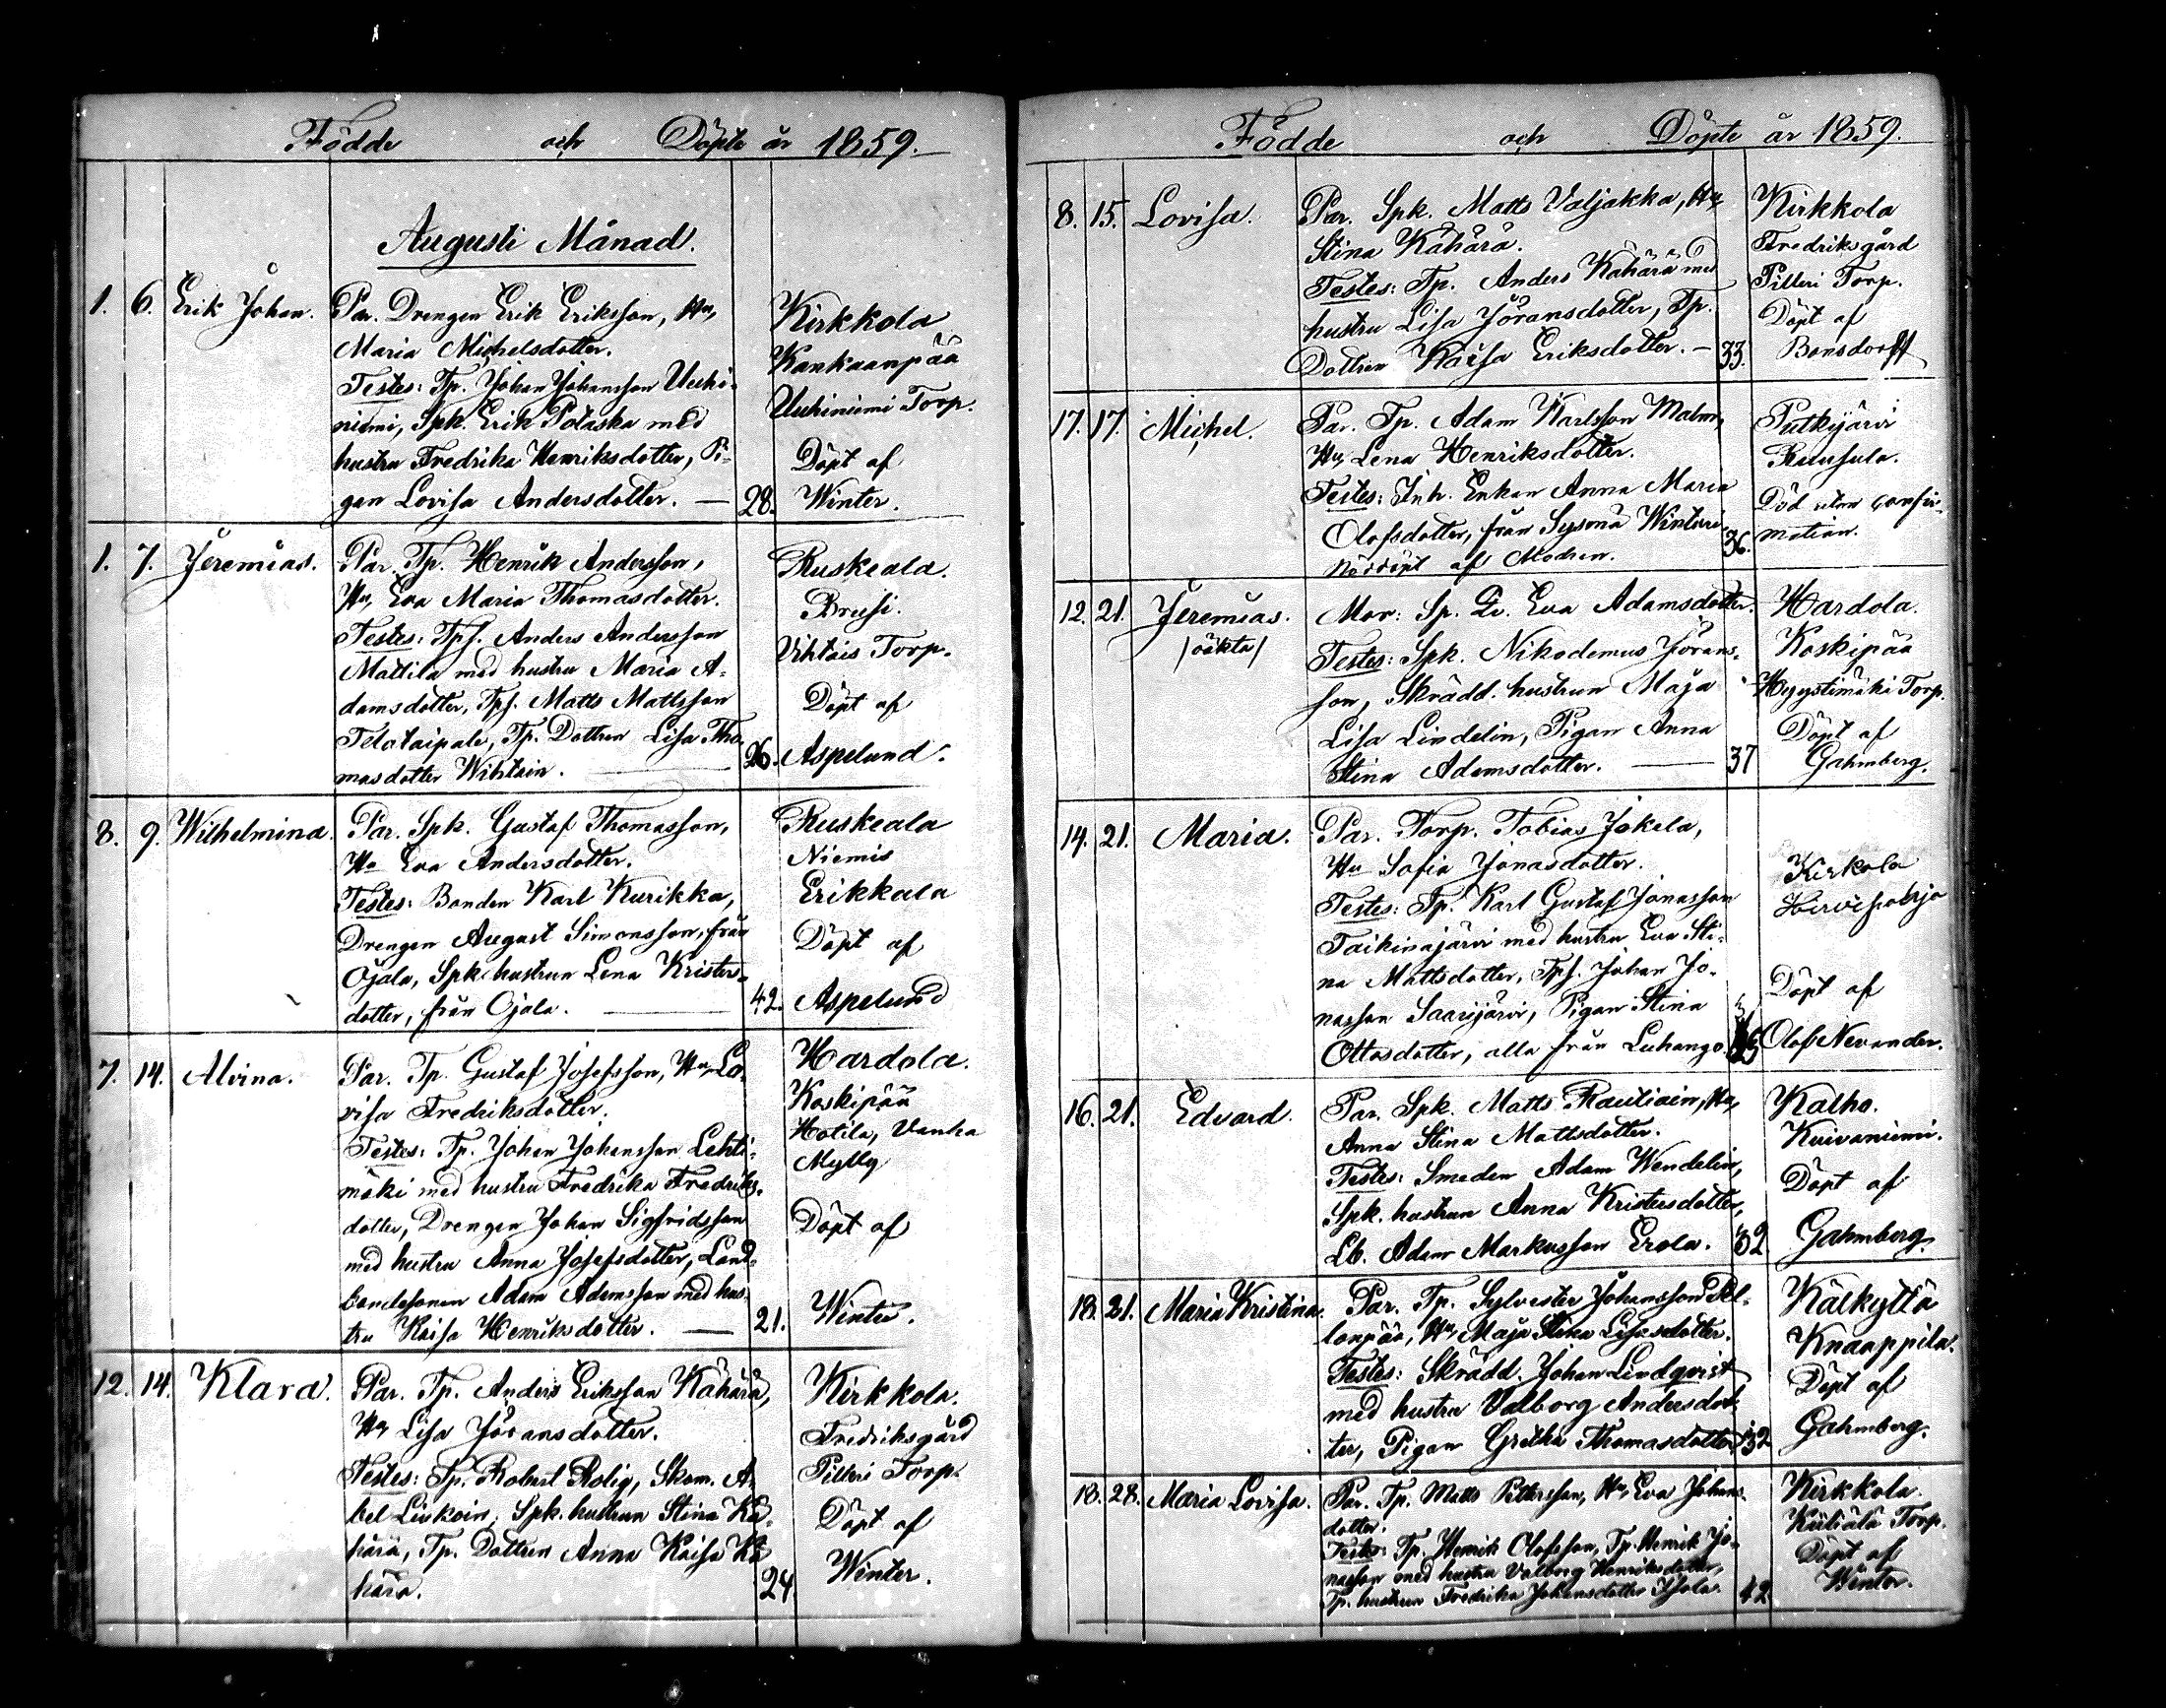 Födde och Döpte år 1859.
Augusti Månad.
1. 6. Erik Johan. Par. Drengen Erik Eriksson, Hu, Kirkkola
Maria Michelsdotter. Kankaanpää
Testes: Tp. Johan Johansson Uuhi- Uuhiniemi Torp.
niemi, Spk. Erik Potaska med
hustru Fredrika Henriksdotter, Pi- Döpt af
gan Lovisa Andersdotter. — 28. Winter.
1. 7. Jeremias. Par. Tp. Henrik Andersson, Ruskeala.
Hu, Eva Maria Thomasdotter. Brusi.
Testes: Tpf. Anders Andersson Vihtais Torp.
Mattila med hustru Maria A-
damsdotter, Tpf. Matts Mattsson Döpt af
Telataipale, Tp. Dottren Lisa Tho-
masdotter Wihtain. — 26. Aspelund.
8. 9. Wilhelmina. Par. Spk. Gustaf Thomasson, Ruskeala
Hu Eva Andersdotter. Niemis
Testes: Bonden Karl Kurikka, Erikkala
Drengen August Simonsson, från Döpt af
Ojala, Spk. hustrun Lena Kristers-
dotter, från Ojala. — 42. Aspelund
7. 14. Alvina. Par. Tp. Gustaf Josefsson, Hu, Lo- Hardola.
visa Fredriksdotter. Koskipää
Testes: Tp. Johan Johansson Lehti- Hotila, Vanha
mäki med hustru Fredrika Fredriks- Mylly
dotter, Drengen Johan Sigfridsson Döpt af
med hustru Anna Josefsdotter, Land-
bondesonen Adam Adamsson med hus-
tru Kaisa Henriksdotter. — 21. Winter.
12. 14. Klara. Par. Tp. Anders Eriksson Kähärä, Kirkkola.
Hu, Lisa Jöransdotter. Fredriksgård
Testes: Tp. Robert Rolig, Skom. A- Pilleri Torp.
bel Liukoin, Spk. hustrun Stina Kä- Döpt af
härä, Tp. Dottren Anna Kaisa Kä-
härä. 24 Winter.
Födde och Döpte år 1859.
8. 15. Lovisa. Par. Spk. Matts Valjakka, Hu, Kirkkola
Stina Kähärä. Fredriksgård
Testes: Tp. Anders Kähärä med Pilleri Torp.
hustru Lisa Jöransdotter, Tp. Döpt af
Dottren Kaisa Eriksdotter. — 33. Bonsdorff
17. 17. Michel. Par. Tp. Adam Karlsson Malm, Putkijärvi
Hu, Lena Henriksdotter. Ruusula.
Testes: Inh. Enkan Anna Maria Död utan confir-
Olofsdotter, från Sysmä
nöddöpt af Modren. 36. mation.
12. 21. Jeremias. Mor: Sp. Eva Adamsdotter. Hardola.
/oäkta/ Testes: Spk. Nikodemus Jörans- Koskipää
son, Skrädd. hustrun Maja Hyystimäki Torp.
Lisa Lindelin, Pigan Anna Döpt af
Stina Adamsdotter. — 37 Gahmberg.
14. 21. Maria. Par. Torp. Tobias Jokela,
Hu Sofia Jonasdotter. Kirkola
Testes: Tp. Karl Gustaf Jonasson Hirvipohja
Taikinajärvi med hustru Eva Sti-
na Mattsdotter, Tpf. Johan Jo- Döpt af
nasson Saarijärvi, Pigan Stina
Ottosdotter, alla från Luhango. Olof Nevander.
16. 21. Edvard. Par. Spk. Matts Rautiain, Hu, Kalho.
Anna Stina Mattsdotter. Kuivaniemi.
Testes: Smeden Adam Wendelin, Döpt af
Spk. hustrun Anna Kristersdotter,
Lb. Adam Markusson Erola. 32 Gahmberg.
18. 21. Maria Kristina. Par. Tp. Sylvester Johansson Pel- Kälkyttä
lonpää, Hu, Maja Stina Lisasdotter. Knaappila.
Testes: Skrädd. Johan Lindqvist Döpt af
med hustru Valborg Andersdot-
ter, Pigan Gretha Thomasdotter 32 Gahmberg.
18. 28. Maria Lovisa. Par. Tp. Matts Pettersson, Hu, Eva Johans- Kirkkola.
dotter. Kuliala Torp.
Testes: Tp. Henrik Olofsson, Tp. Henrik Jo- Döpt af
nasson med hustru Valborg Henriksdotter, Winter.
Tp. hustrun Fredrika Johansdotter Ihola. 42.